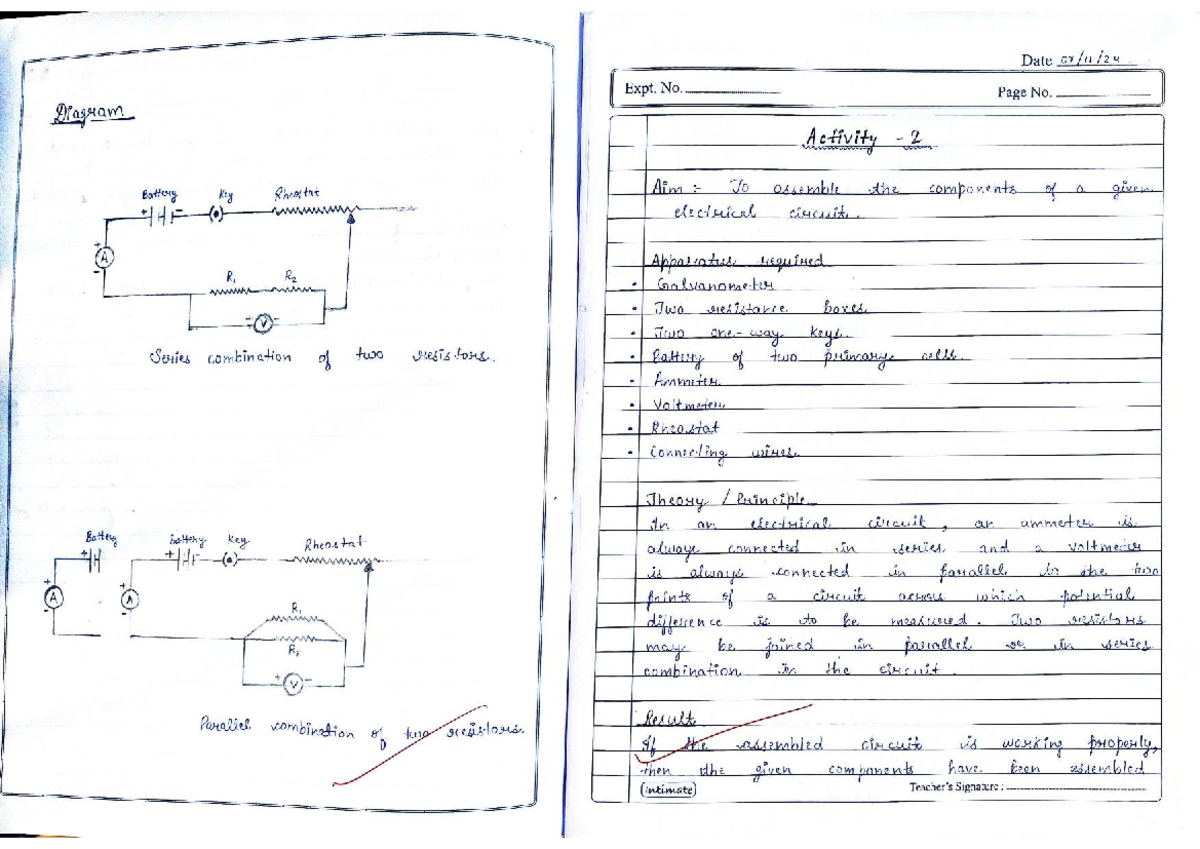 Diagram
Battery Key Rheostat
+ -
+
A
-
R1 R2
V
Series combination of two resistors.
Battery Battery Key Rheostat
+ + -
+ +
A A
- -
R1
R2
+ V -
Parallel combination of two resistors.
Date 07/11/24
Expt. No. Page No.
Activity - 2
Aim :- To assemble the components of a given
electrical circuit.
Apparatus required
• Galvanometer
• Two resistance boxes
• Two one-way keys.
• Battery of two primary cells.
• Ammeter
• Voltmeter
• Rheostat
• Connecting wires.
Theory / Principle
In an electrical circuit, an ammeter is
always connected in series and a voltmeter
is always connected in parallel to the two
points of a circuit across which potential
difference is to be measured. Two resistors
may be joined in parallel or in series
combination in the circuit.
Result
If the assembled circuit is working properly,
then the given components have been assembled
(intimate) Teacher's Signature :